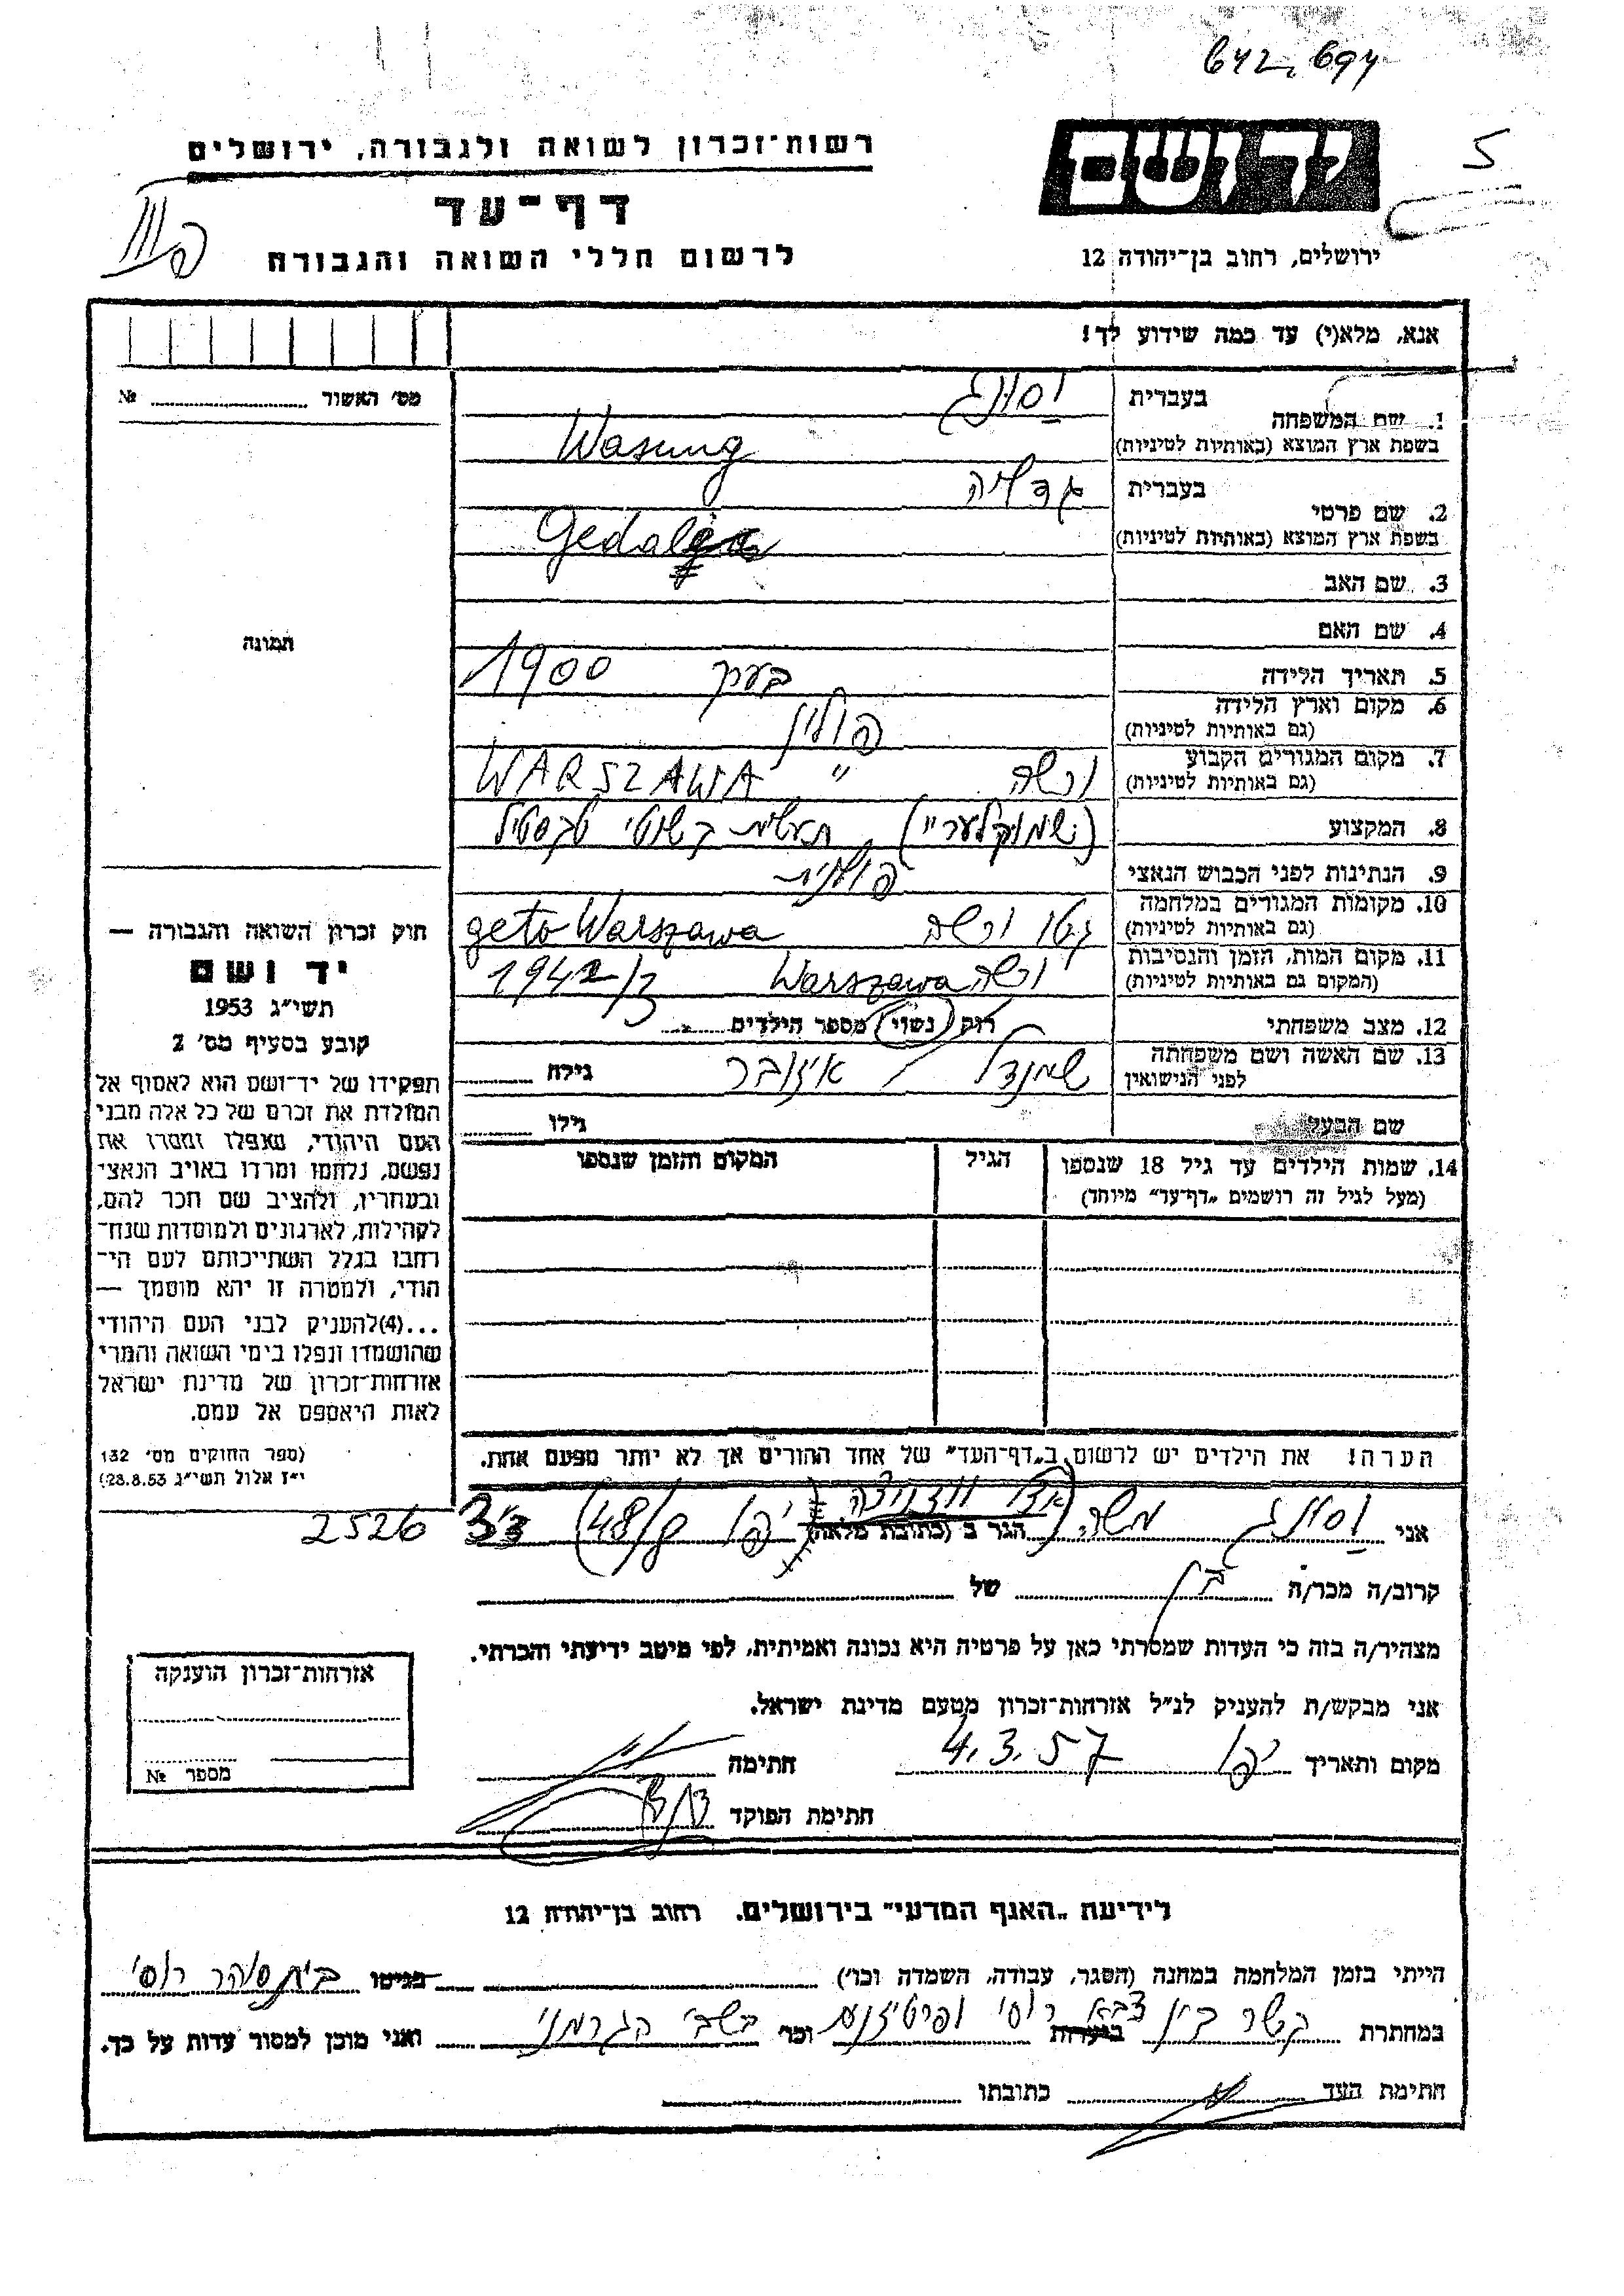 642,694
5
יד ושם
רשות־זכרון לשואה ולגבורה, ירושלים
דף־עד
לרשום חללי השואה והגבורה
ירושלים, רחוב בן־יהודה 12
אנא, מלא(י) עד כמה שידוע לך!
מס׳ האשור № ............
1. שם המשפחה
בעברית וסונג
בשפת ארץ המוצא (באותיות לטיניות) Wasung
2. שם פרטי
בעברית גדליה
בשפת ארץ המוצא (באותיות לטיניות) Gedalja
3. שם האב
4. שם האם
תמונה
5. תאריך הלידה בערך 1900
6. מקום וארץ הלידה פולין
(גם באותיות לטיניות)
7. מקום המגורים הקבוע ורשה " WARSZAWA
(גם באותיות לטיניות)
8. המקצוע
9. הנתינות לפני הכבוש הנאצי פולנית
10. מקומות המגורים במלחמה גטו ורשה geto Warszawa
(גם באותיות לטיניות)
11. מקום המות, הזמן והנסיבות ורשה Warszawa 1942/3
(המקום גם באותיות לטיניות)
12. מצב משפחתי רווק / נשוי / מספר הילדים
13. שם האשה ושם משפחתה גילה
לפני הנישואין
שם הבעל גילו
14. שמות הילדים עד גיל 18 שנספו
(מעל לגיל זה רושמים „דף־עד״ מיוחד)
הגיל
המקום והזמן שנספו
חוק זכרון השואה והגבורה —
יד ושם
תשי״ג 1953
קובע בסעיף מס׳ 2
תפקידו של יד־ושם הוא לאסוף אל
המולדת את זכרם של כל אלה מבני
העם היהודי, שנפלו ומסרו את
נפשם, נלחמו ומרדו באויב הנאצי
ובעוזריו, ולהציב שם וזכר להם,
לקהילות, לארגונים ולמוסדות שנח־
רבו בגלל השתייכותם לעם הי־
הודי, ולמטרה זו יהא מוסמך —
...(4)להעניק לבני העם היהודי
שהושמדו ונפלו בימי השואה והמרי
אזרחות־זכרון של מדינת ישראל
לאות היאספם אל עמם.
(ספר החוקים מס׳ 132
י״ז אלול תשי״ג 28.8.53)
הערה! את הילדים יש לרשום ב„דף־העד״ של אחד ההורים אך לא יותר מפעם אחת.
אני וסונג משה הגר ב (כתובת מלאה) יפו 2526
קרוב/ה מכר/ה בן של
מצהיר/ה בזה כי העדות שמסרתי כאן על פרטיה היא נכונה ואמיתית, לפי מיטב ידיעתי והכרתי.
אני מבקש/ת להעניק לנ״ל אזרחות־זכרון מטעם מדינת ישראל.
מקום ותאריך יפו 4.3.57 חתימה
חתימת הפוקד
אזרחות־זכרון הוענקה
מספר №
לידיעת „האגף המדעי״ בירושלים. רחוב בן־יהודה 12
הייתי בזמן המלחמה במחנה (הסגר, עבודה, השמדה וכו׳) בגיטו בית סוהר רוסי
במחתרת קשר בין ביערות צבא רוסי ופרטיזנים וכו׳ בשבי הגרמני ואני מוכן למסור עדות על כך.
חתימת העד כתובתו